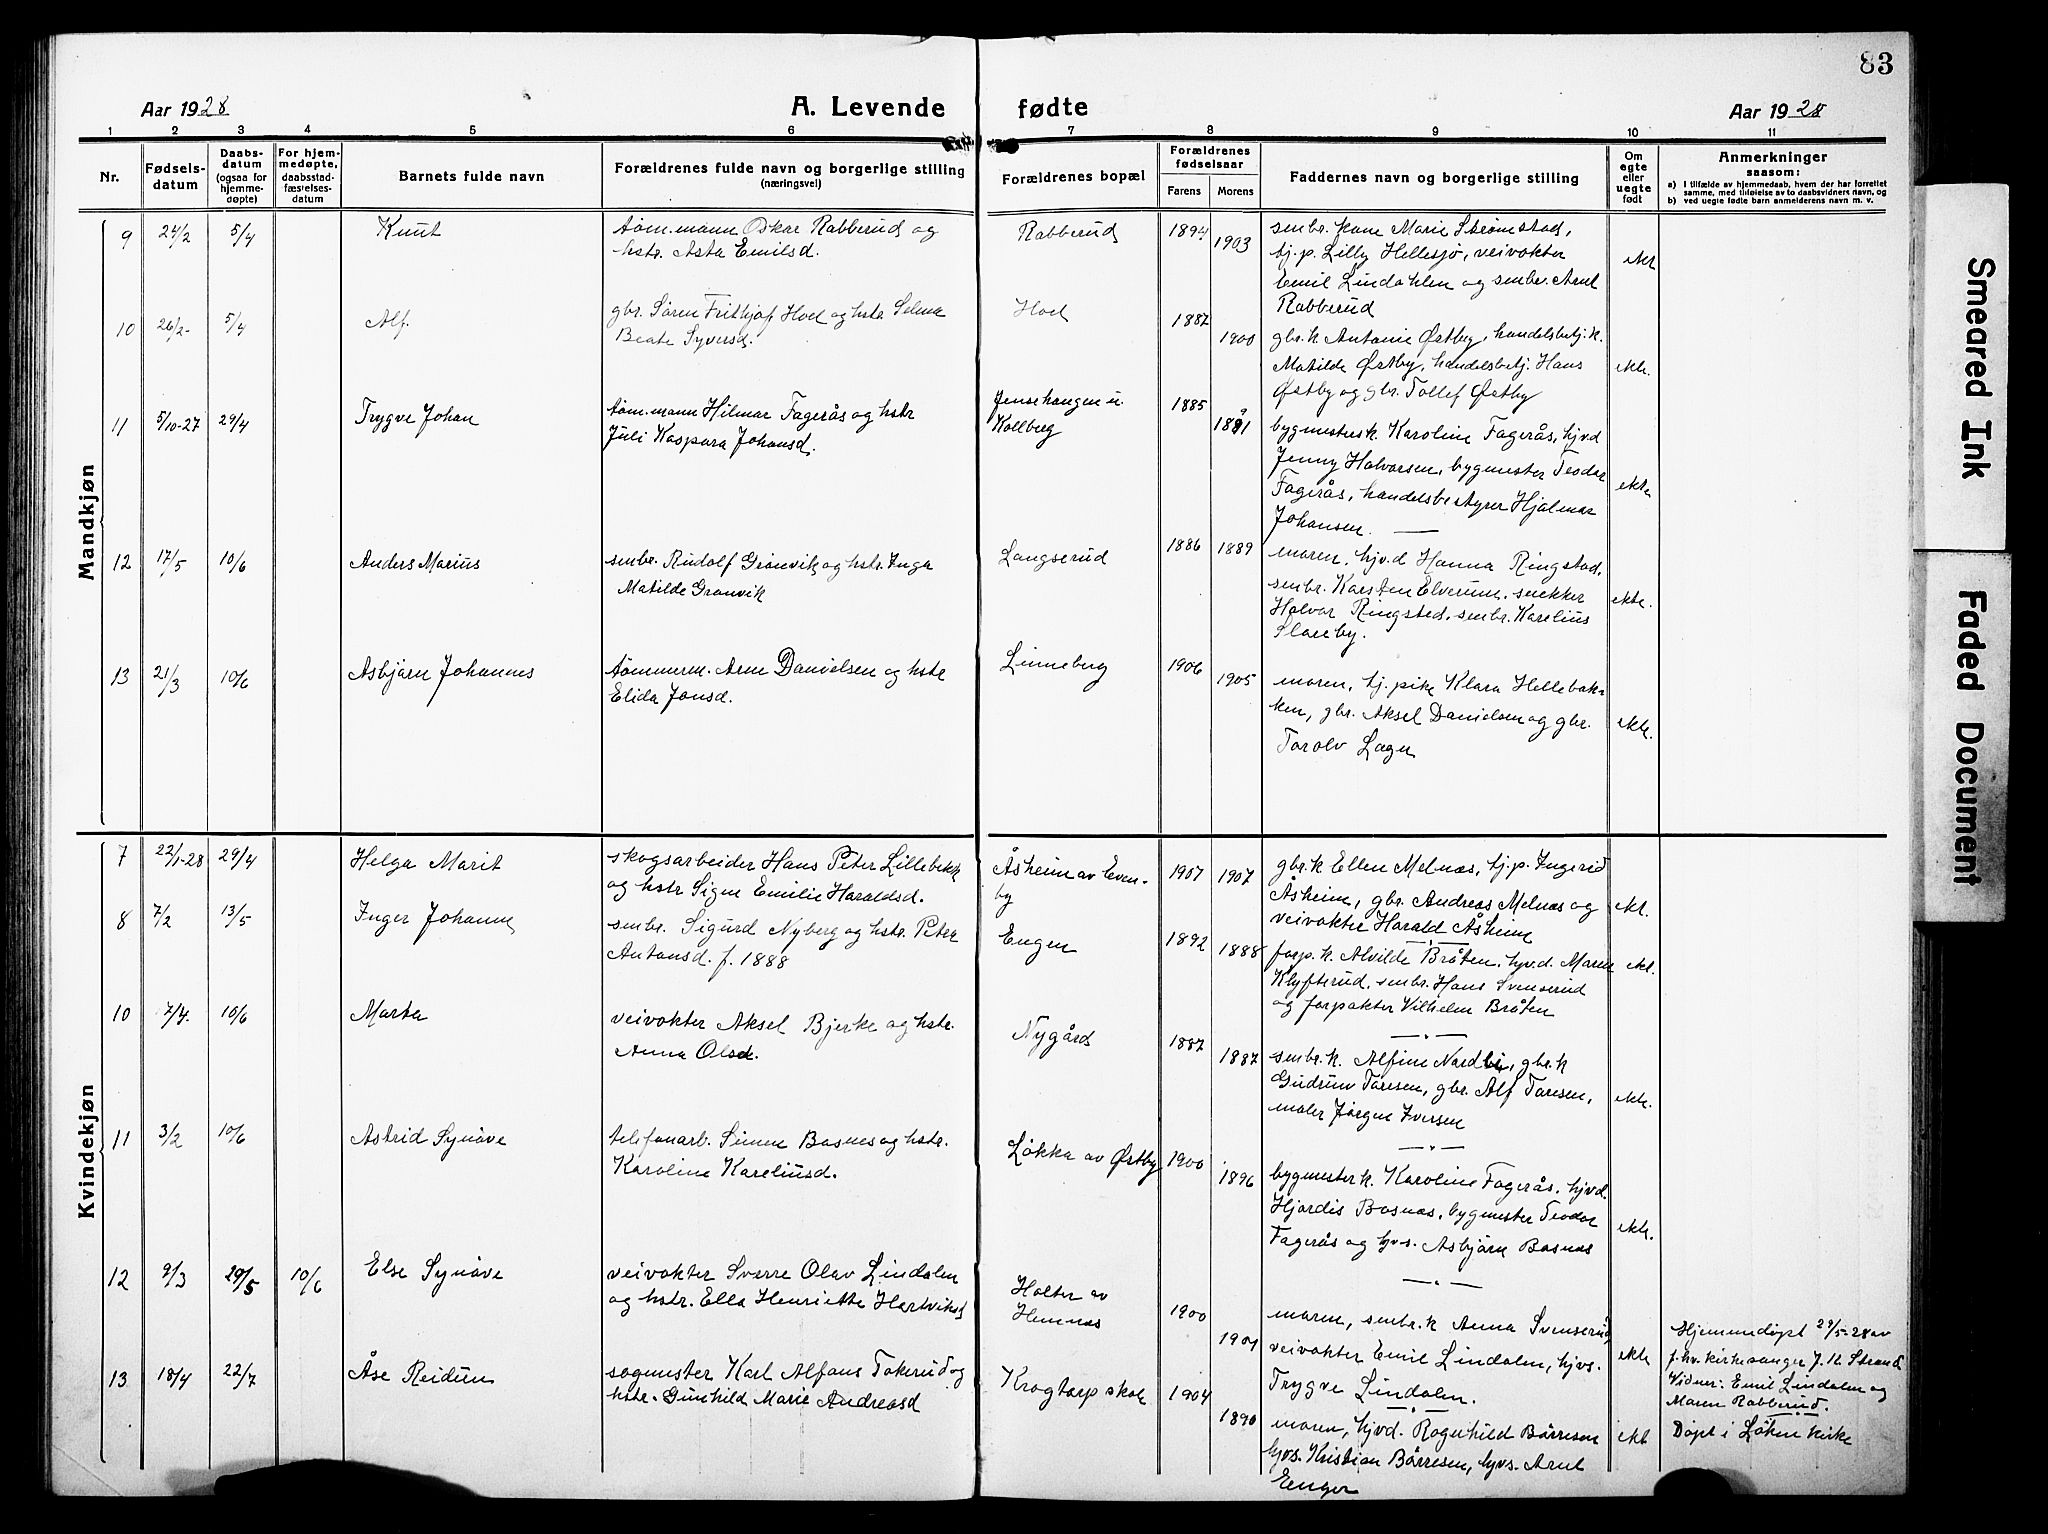 83
Aar 1928
A. Levende fødte
Aar 1928
1 2 3 4 5 6 7 8 9 10 11
Nr.
Fødsels-
datum
Daabs-
datum
(ogsaa for
hjemme-
døpte)
For hjem-
medøpte,
daabsstad-
fæstelses-
datum
Barnets fulde navn
Forældrenes fulde navn og borgerlige stilling
(næringsvei)
Forældrenes bopæl
Forældrenes
fødselsaar
Farens Morens
Faddernes navn og borgerlige stilling
Om
egte
eller
uegte
født
Anmerkninger
saasom:
a) I tilfælde av hjemmedaab, hvem der har forrettet
samme, med tilføielse av to daabsvidners navn, og
b) ved uegte fødte barn anmelderens navn m. v.
Mandkjøn
9 24/2 5/4 Knut
tøm.mann Oskar Rabberud og
hstr. Asta Emilsd.
Rabberud
1894 1903
smbr. kone Marie Strømstad,
tj.p. Lilly Hellesjø, veivokter
Emil Lindahlen og smbr. Arnt
Rabberud
ekt
10 26/2- 5/4 Alf.
gbr. Søren Frithjof Hoel og hstr Selma
Beate Syversd.
Hoel
1887 1900
gbr.k Antonie Østby, handelsbetj.k.
Matilde Østby, handelsbetj. Hans
Østby og gbr. Tollef Østby
ekte.
11 5/10-27 29/4 Trygve Johan
tøm.mann Hilmar Fagerås og hstr
Juli Kaspara Johansd.
Jensehaugen u.
Kollberg
1885 1891
bygmesterk. Karoline Fagerås, hjv.d
Jenny Halvorsen, bygmester Teodor
Fagerås, handelsbestyrer Hjalmar
Johansen.
ekte
12 17/5 10/6 Anders Marius
smbr. Rudolf Grønvik og hstr. Inga
Matilde Grønvik
Langserud
1886 1889
moren, hjv.d Hanna Ringstad,
smbr. Karsten Elverum, snekker
Halvor Ringsted, smbr. Karelius
Slareby.
ekte.
13 21/3 10/6 Asbjørn Johannes
tømmerm. Arne Danielsen og hstr
Elida Jonsd.
Linneberg
1906 1905
moren, tj.pike Klara Hellebak-
ken, gbr. Aksel Danielsen og gbr.
Torolv Lager
ekte.
Kvindekjøn
7 22/1-28 29/4 Helga Marit
skogsarbeider Hans Peter Lillebekk
og hstr Signe Emilie Haraldsd.
Åsheim av Even-
by
1907 1907
gbr.k Ellen Melnæs, tj.p. Ingerid
Åsheim, gbr. Andreas Melnæs og
veivokter Harald Åsheim
ekt.
8 7/2 13/5 Inger Johanne
smbr. Sigurd Nyberg og hstr. Petra
Antonsd. f. 1888
Engen
1892 1888
forp.k. Alvilde Bråten, hjv.d. Maren
Klyfterud, smbr. Hans Svenserud
og forpakter Vilhelm Bråten
ekt.
10 7/4. 10/6 Marta
veivokter Aksel Bjerke og hstr.
Anna Olsd.
Nygård
1887 1887
smbr.k. Alfine Nordli, gbr.k
Gudrun Toresen, gbr. Alf Toresen,
maler Jørgen Iversen
ekte.
11 3/2 10/6 Astrid Synøve
telefonarb. Simen Bosnes og hstr.
Karoline Kareliusd.
Løkka av Østby
1900 1896
bygmesterk. Karoline Fagerås, hjvd.
Hjørdis Bosnæs, bygmester Teodor
Fagerås og hjvs. Asbjørn Bosnæs
ekte.
12 9/3 29/5 10/6 Else Synøve
veivokter Sverre Olav Lindalen
og hstr. Ella Henriette Hartviksd
Holter av
Hemnæs
1900 1901
moren, smbr.k Anna Svenserud,
veivokter Emil Lindalen, hjvs.
Trygve Lindalen.
ekte
Hjemmedøpt 29/5-28 av
f.hv. kirkesanger J. H. Strand.
Vidner: Emil Lindalen og
Maren Rabberud.
13 18/4 22/7 Åse Reidun
sagmester Karl Alfons Tokerud og
hstr. Gunhild Marie Andreasd
Krogtorp skole
1904 1890
moren, hjvd. Ragnhild Børresen
hjvs. Kristian Børresen, hjvs. Arnt
Enger
ekt
Døpt i Løken kirke
Smeared Ink
Faded Document